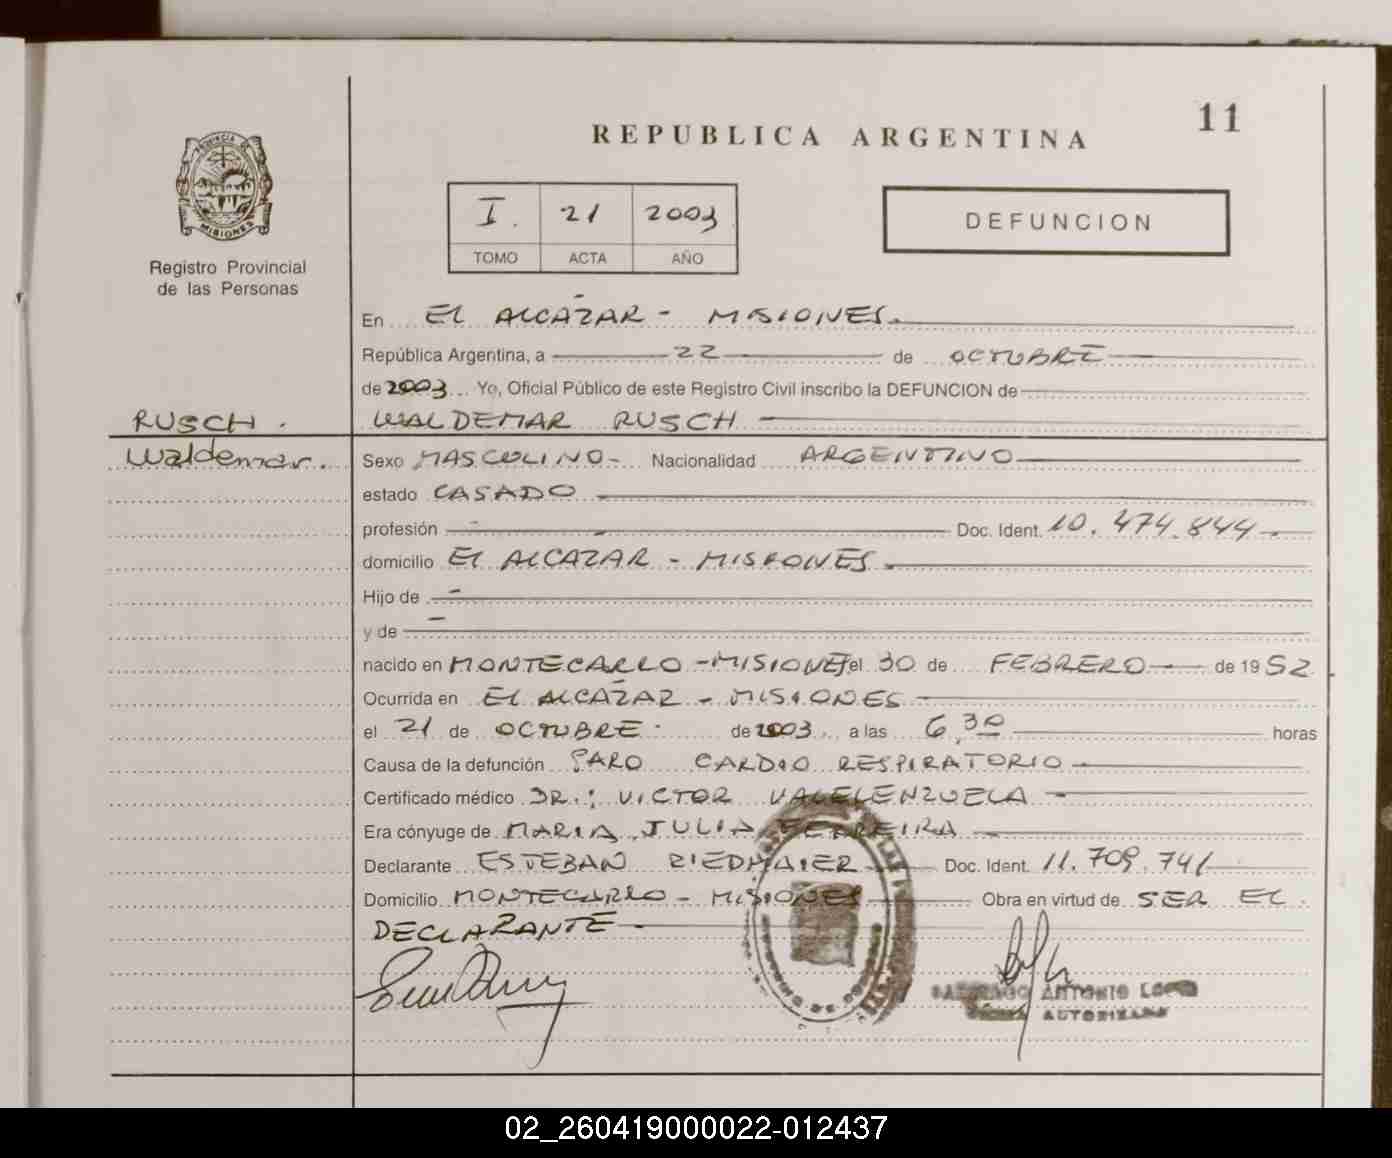 11
REPUBLICA ARGENTINA
PROVINCIA DE
MISIONES
Registro Provincial
de las Personas
I. 21 2003
TOMO ACTA AÑO
DEFUNCION
En EL ALCÁZAR - MISIONES.
República Argentina, a 22 de OCTUBRE
de 2003 Yo, Oficial Público de este Registro Civil inscribo la DEFUNCION de
RUSCH. WALDEMAR RUSCH
Waldemar. Sexo MASCULINO - Nacionalidad ARGENTINO
estado CASADO
profesión - Doc. Ident. 10.474.844
domicilio EL ALCAZAR - MISIONES
Hijo de -
y de -
nacido en MONTECARLO - MISIONES el 30 de FEBRERO de 1952
Ocurrida en EL ALCÁZAR - MISIONES
el 21 de OCTUBRE de 2003 a las 6,30 horas
Causa de la defunción PARO CARDIO RESPIRATORIO
Certificado médico DR.: VICTOR VALELENZUELA
Era cónyuge de MARIA JULIA FERREIRA
Declarante ESTEBAN RIEDMAIER Doc. Ident. 11.709.741
Domicilio MONTECARLO - MISIONES Obra en virtud de SER EL
DECLARANTE
ANTONIO
AUTORIZADA
02_260419000022-012437